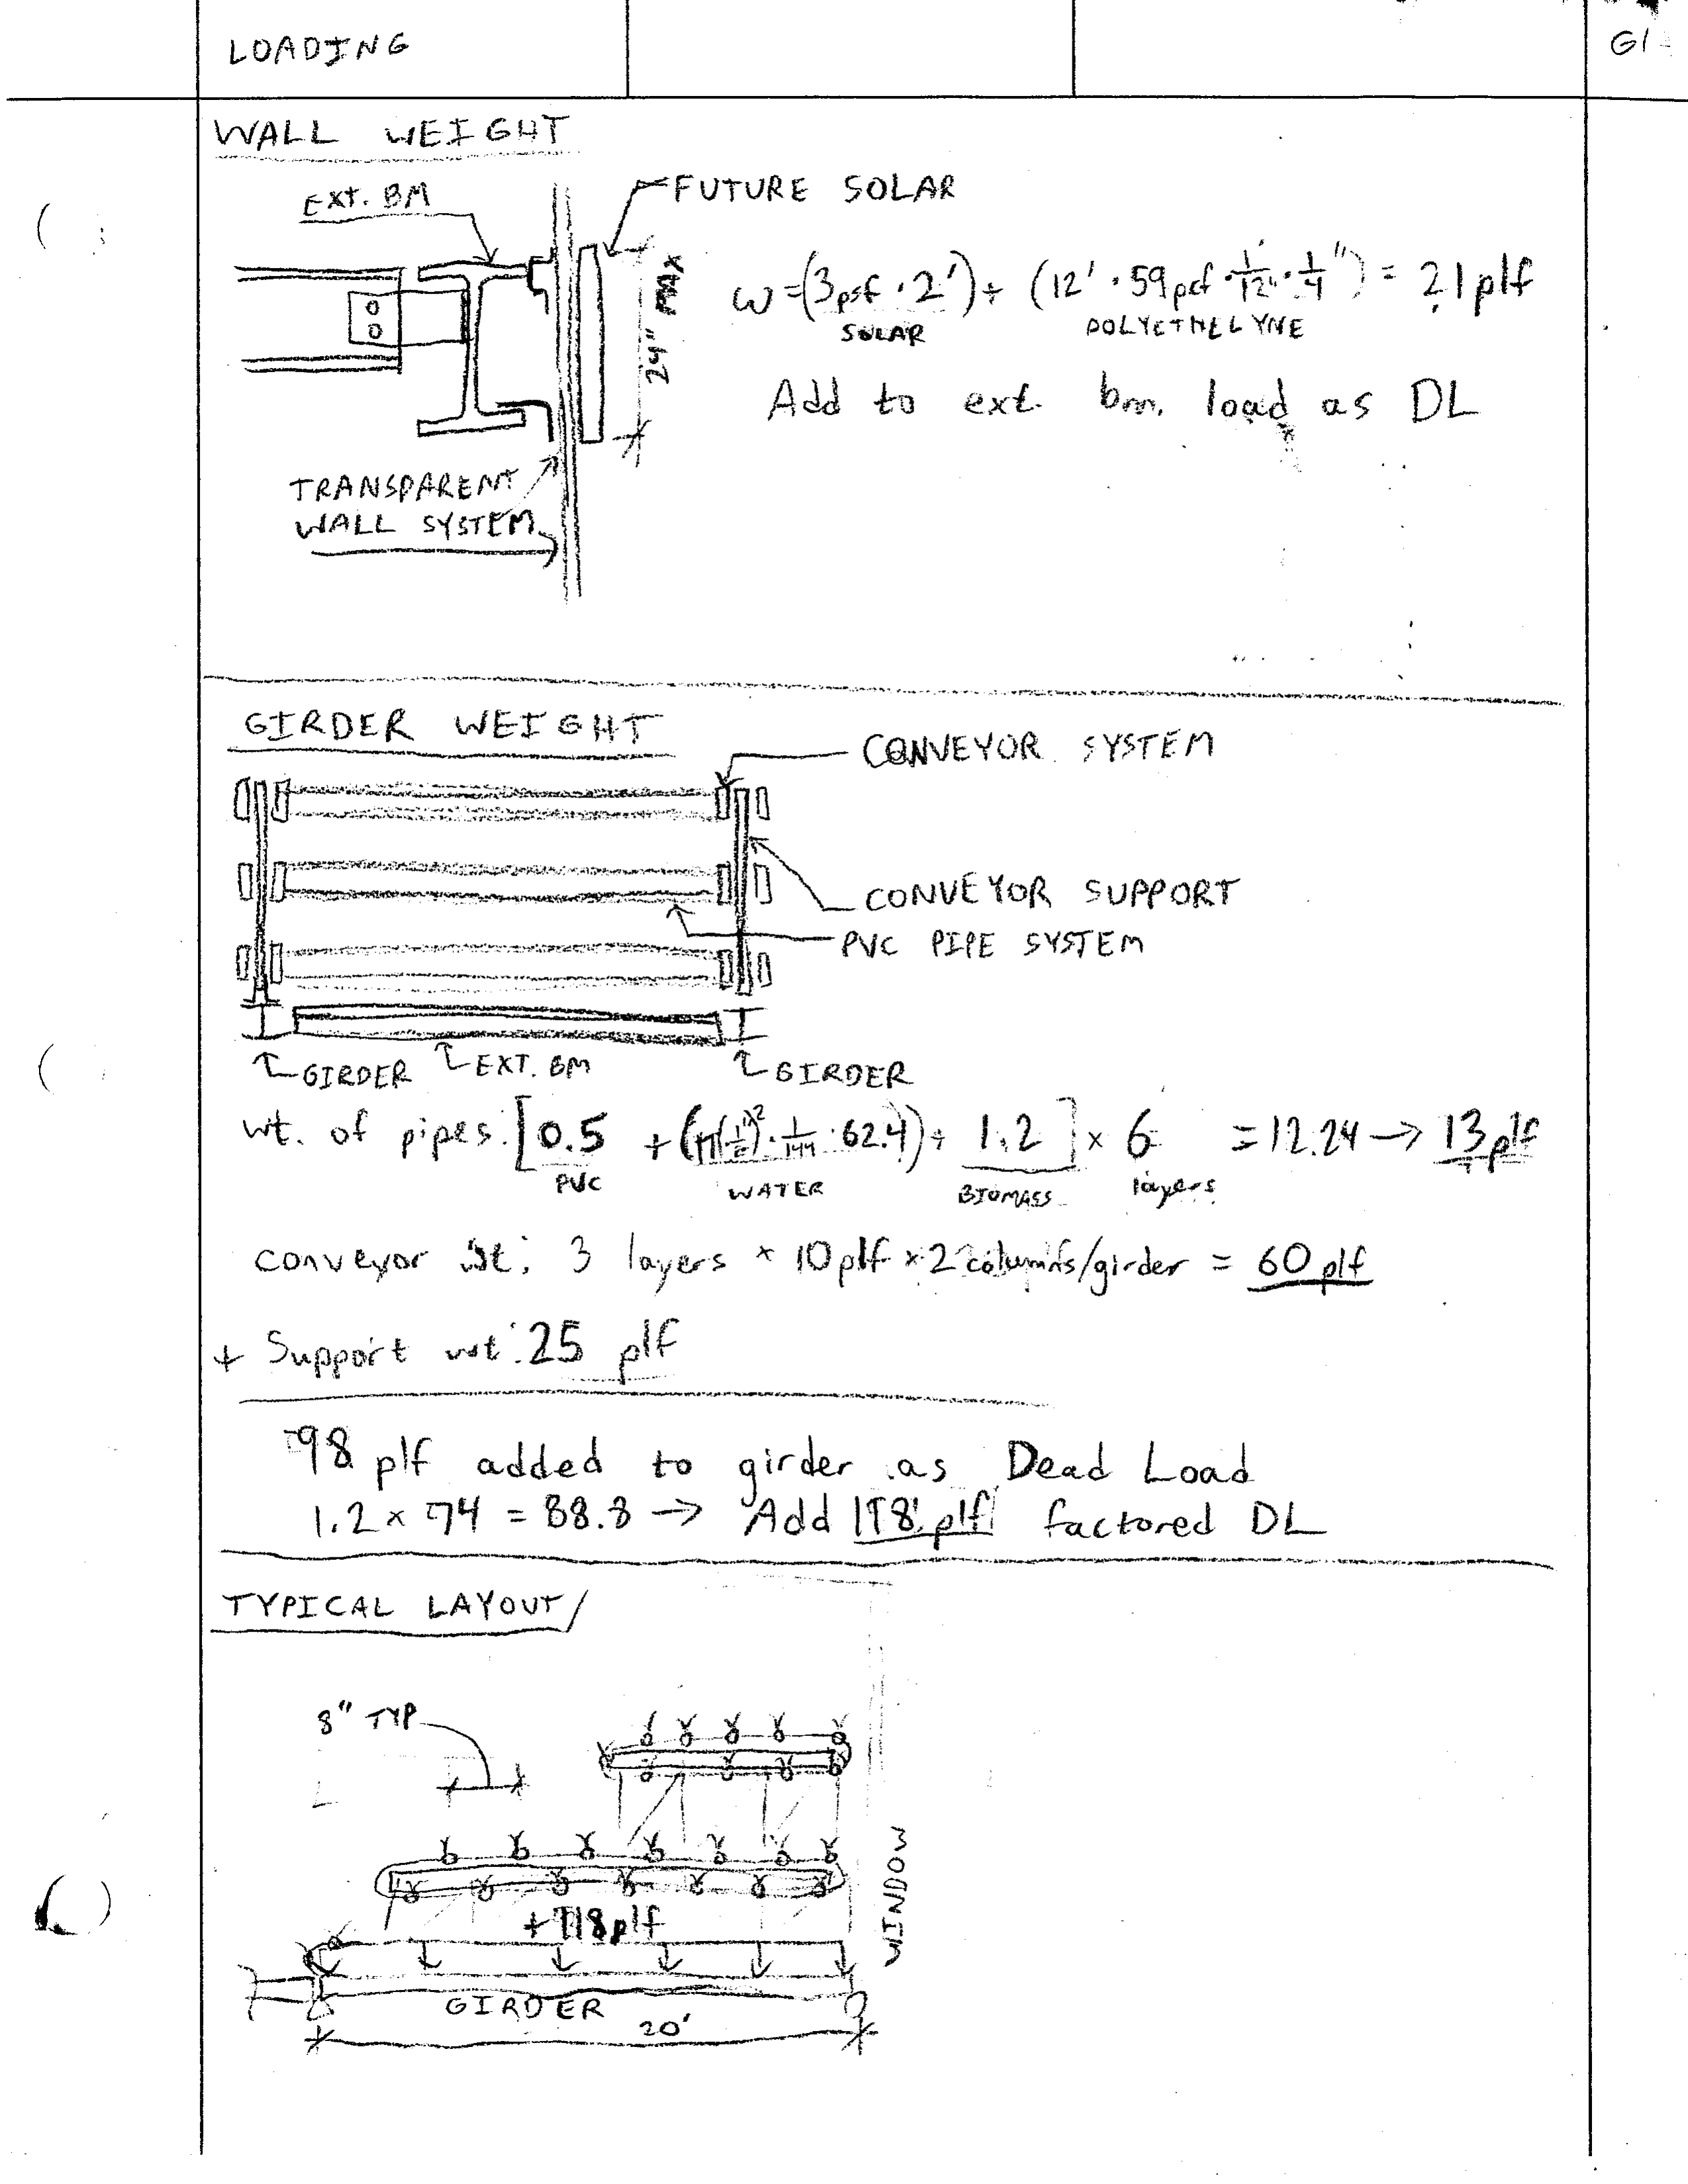 LOADING
G1
WALL WEIGHT
EXT. BM
FUTURE SOLAR
24" MAX
w=(3psf · 2') + (12' · 59pcf · 1/12 · 1/4") = 21plf
SOLAR
POLYETHELYNE
Add to ext. bm. load as DL
TRANSPARENT
WALL SYSTEM
GIRDER WEIGHT
CONVEYOR SYSTEM
CONVEYOR SUPPORT
PVC PIPE SYSTEM
GIRDER EXT. BM GIRDER
wt. of pipes: [0.5 + (π( )² · 1/144 · 62.4) + 1.2] x 6 = 12.24 → 13plf
PVC WATER BIOMASS layers
conveyor wt: 3 layers x 10plf x 2 columns/girder = 60plf
+ Support wt: 25 plf
98 plf added to girder as Dead Load
1.2 x 74 = 88.8 → Add 118 plf factored DL
TYPICAL LAYOUT
8" TYP
WINDOW
+118plf
GIRDER
20'